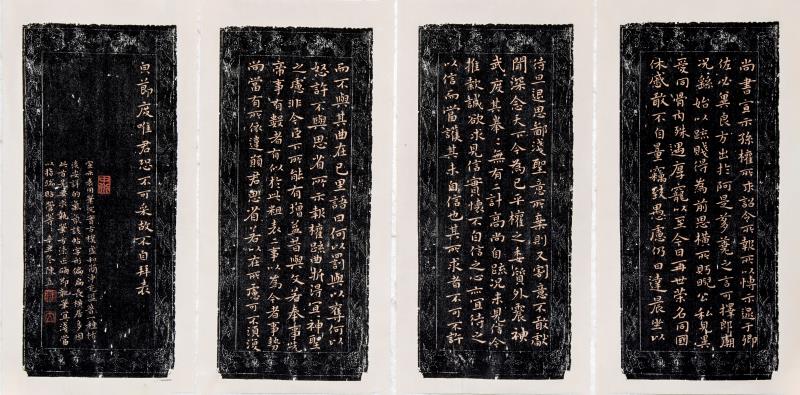 尚書宣示孫權所求詔令所報所以博示逯于卿
佐必冀良方出於阿是芻蕘之言可擇郎廟
況繇始以疏賤得為前恩橫所眄睨公私見異
愛同骨肉殊遇厚寵以至今日再世榮名同國
休慼敢不自量竊致愚慮仍日達晨坐以
待旦退思鄙淺聖意所棄則又割意不敢獻
聞深念天下今為已平權之委質外震神
武度其拳拳無有二計高尚自疏況未見信今
推款誠欲求見信實懷不自信之心亦宜待之
以信而當護其未自信也其所求者不可不許
而不與其曲在己里語曰何以罰與以奪何以
怒許不與思省所示報權疏曲折得宜神聖
之慮非今臣下所能有增益昔與文若奉事先
帝事有數者有似於此粗表二事以為今者事勢
尚當有所依違願君思省若以在所慮可不須復
節度唯君恐不可采故不自拜表
宣示表用筆沉著古樸虛和簡沖充溢着一種恬
淡安詳的氣氛該帖字形偏扁長橫居多因
此首先要求執筆方法正确即執筆宜淺需
以指端貼管